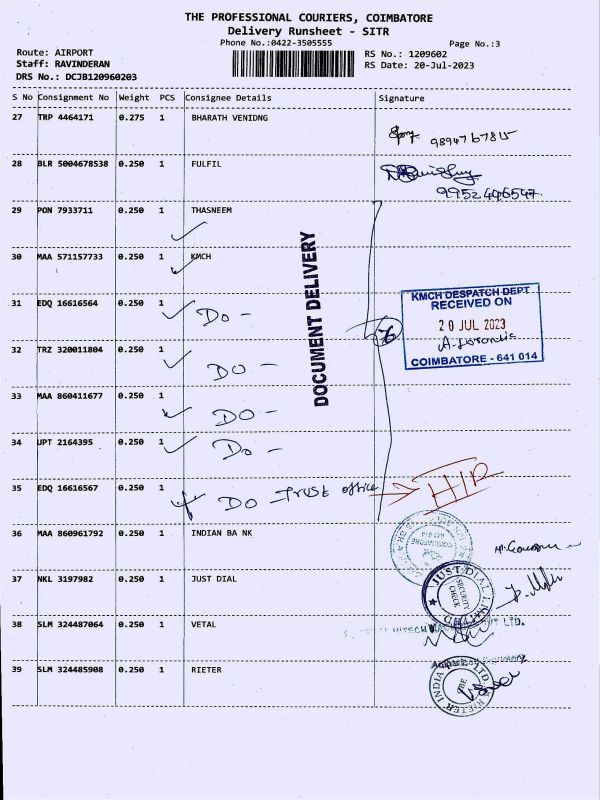 THE PROFESSIONAL COURIERS, COIMBATORE
Delivery Runsheet - SITR
Phone No.:0422-3505555
Page No.:3
Route: AIRPORT
RS No.: 1209602
Staff: RAVINDERAN
RS Date: 20-Jul-2023
DRS No.: DCJB120960203
S No Consignment No Weight PCS Consignee Details Signature
27 TRP 4464171 0.275 1 BHARATH VENIDNG
9894767815
28 BLR 5004678538 0.250 1 FULFIL
9952446547
29 PON 7933711 0.250 1 THASNEEM
30 MAA 571157733 0.250 1 KMCH
DOCUMENT DELIVERY
KMCH DESPATCH DEPT
RECEIVED ON
20 JUL 2023
COIMBATORE - 641 014
31 EDQ 16616564 0.250 1
Do -
32 TRZ 320011804 0.250 1
DO -
33 MAA 860411677 0.250 1
DO -
34 UPT 2164395 0.250 1
Do -
35 EDQ 16616567 0.250 1
DO - Trust office
H/R
36 MAA 860961792 0.250 1 INDIAN BA NK
COIMBATORE
37 NKL 3197982 0.250 1 JUST DIAL
JUST DIAL
SECURITY CHECK
38 SLM 324487064 0.250 1 VETAL
LTD.
39 SLM 324485908 0.250 1 RIETER
RIETER INDIA LTD.